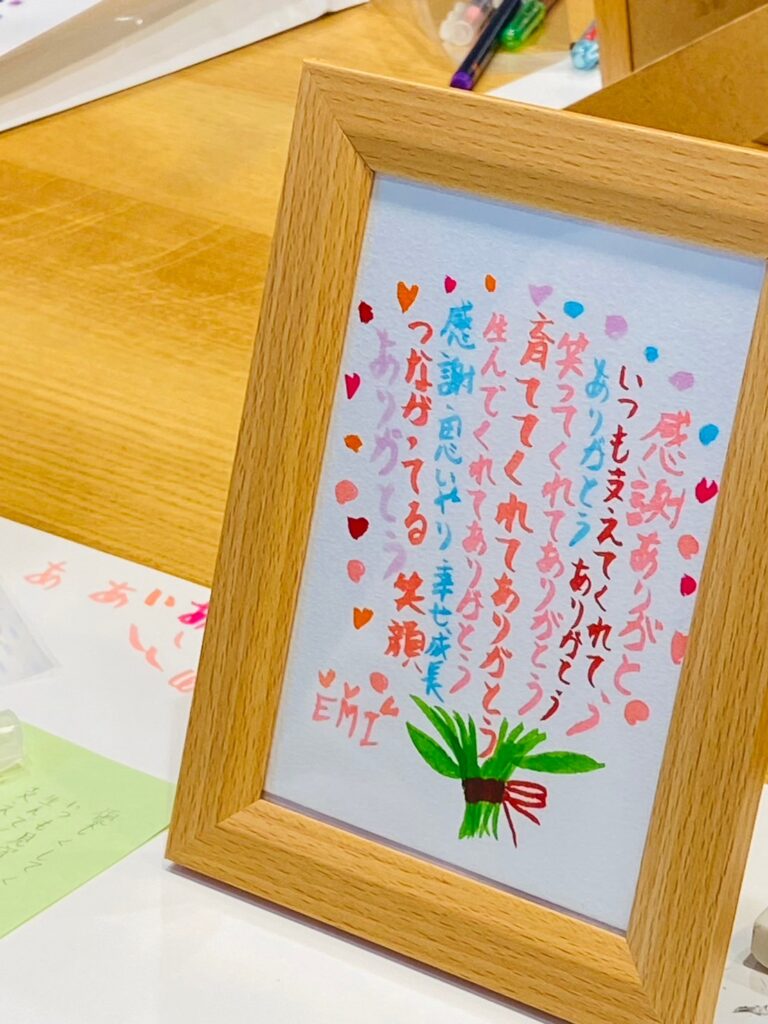 感謝ありがとう
いつも支えてくれてありがとう
ありがとう
笑ってくれてありがとう
育ててくれてありがとう
生んでくれてありがとう
感謝、思いやり、幸せ、成長、
つながってる 笑顔、
ありがとう
EMI
あ あ い あ